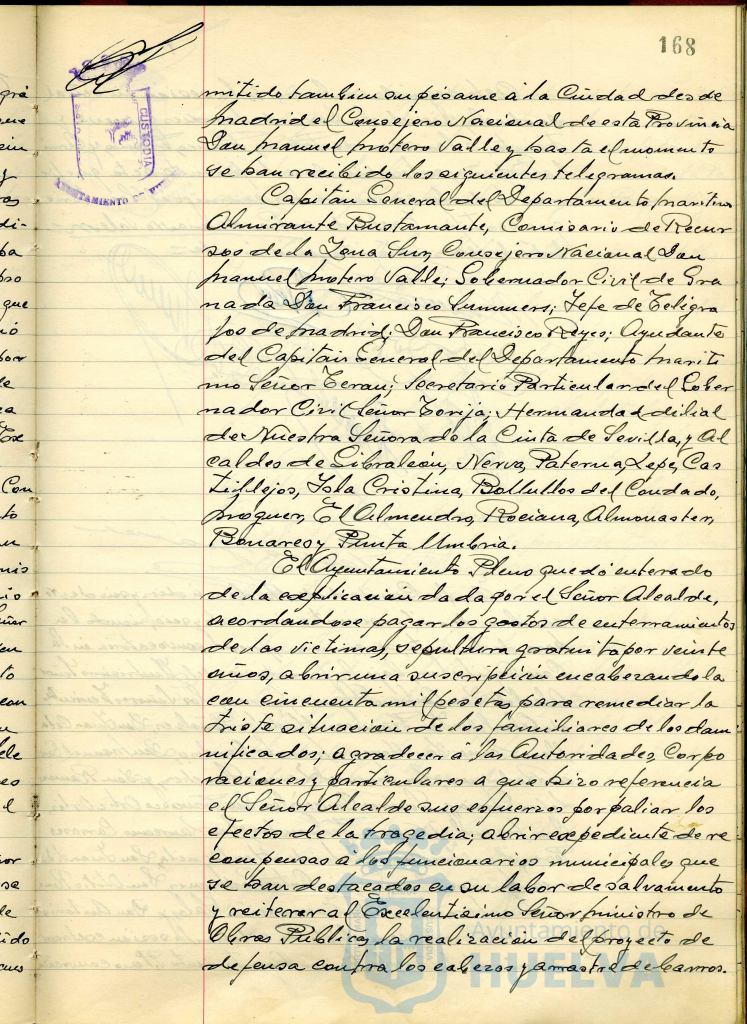 168
CUSTODIA
AYUNTAMIENTO DE
mitido tambien su pésame á la Ciudad desde
Madrid el Consejero Nacional de esta Provincia
Don Manuel Motero Valle y hasta el momento
se han recibido los siguientes telegramas.
Capitán General del Departamento Marítimo
Almirante Bustamante, Comisario de Recur
sos de la Zona Sur, Consejero Nacional Don
Manuel Motero Valle; Gobernador Civil de Gra
nada Don Francisco Summers; Jefe de Telégra
fos de Madrid; Don Francisco Reyes; Ayudante
del Capitán General del Departamento Maríti
mo Señor Teran; Secretario Particular del Gober
nador Civil Señor Torija; Hermandad filial
de Nuestra Señora de la Cinta de Sevilla, y Al
caldes de Gibraleón, Nerva, Paterna, Lepe, Cas
tillejos, Isla Cristina, Bollullos del Condado,
Moguer, El Almendro, Rociana, Almonaster,
Bonares y Punta Umbría.
El Ayuntamiento Pleno quedó enterado
de la explicación dada por el Señor Alcalde,
acordandose pagar los gastos de enterramientos
de las victimas, sepultura gratuita por veinte
años, abrir una suscripción encabezandola
con cincuenta mil pesetas para remediar la
triste situación de los familiares de los dam
nificados; agradecer á las Autoridades, Corpo
raciones y particulares a que hizo referencia
el Señor Alcalde sus esfuerzos por paliar los
efectos de la tragedia; abrir expediente de re
compensas á los funcionarios municipales que
se han destacados en su labor de salvamento
y reiterar al Excelentísimo Señor Ministro de
Obras Públicas la realización del proyecto de
defensa contra los cabezos y arrastre de barros.
Ayuntamiento de
HUELVA